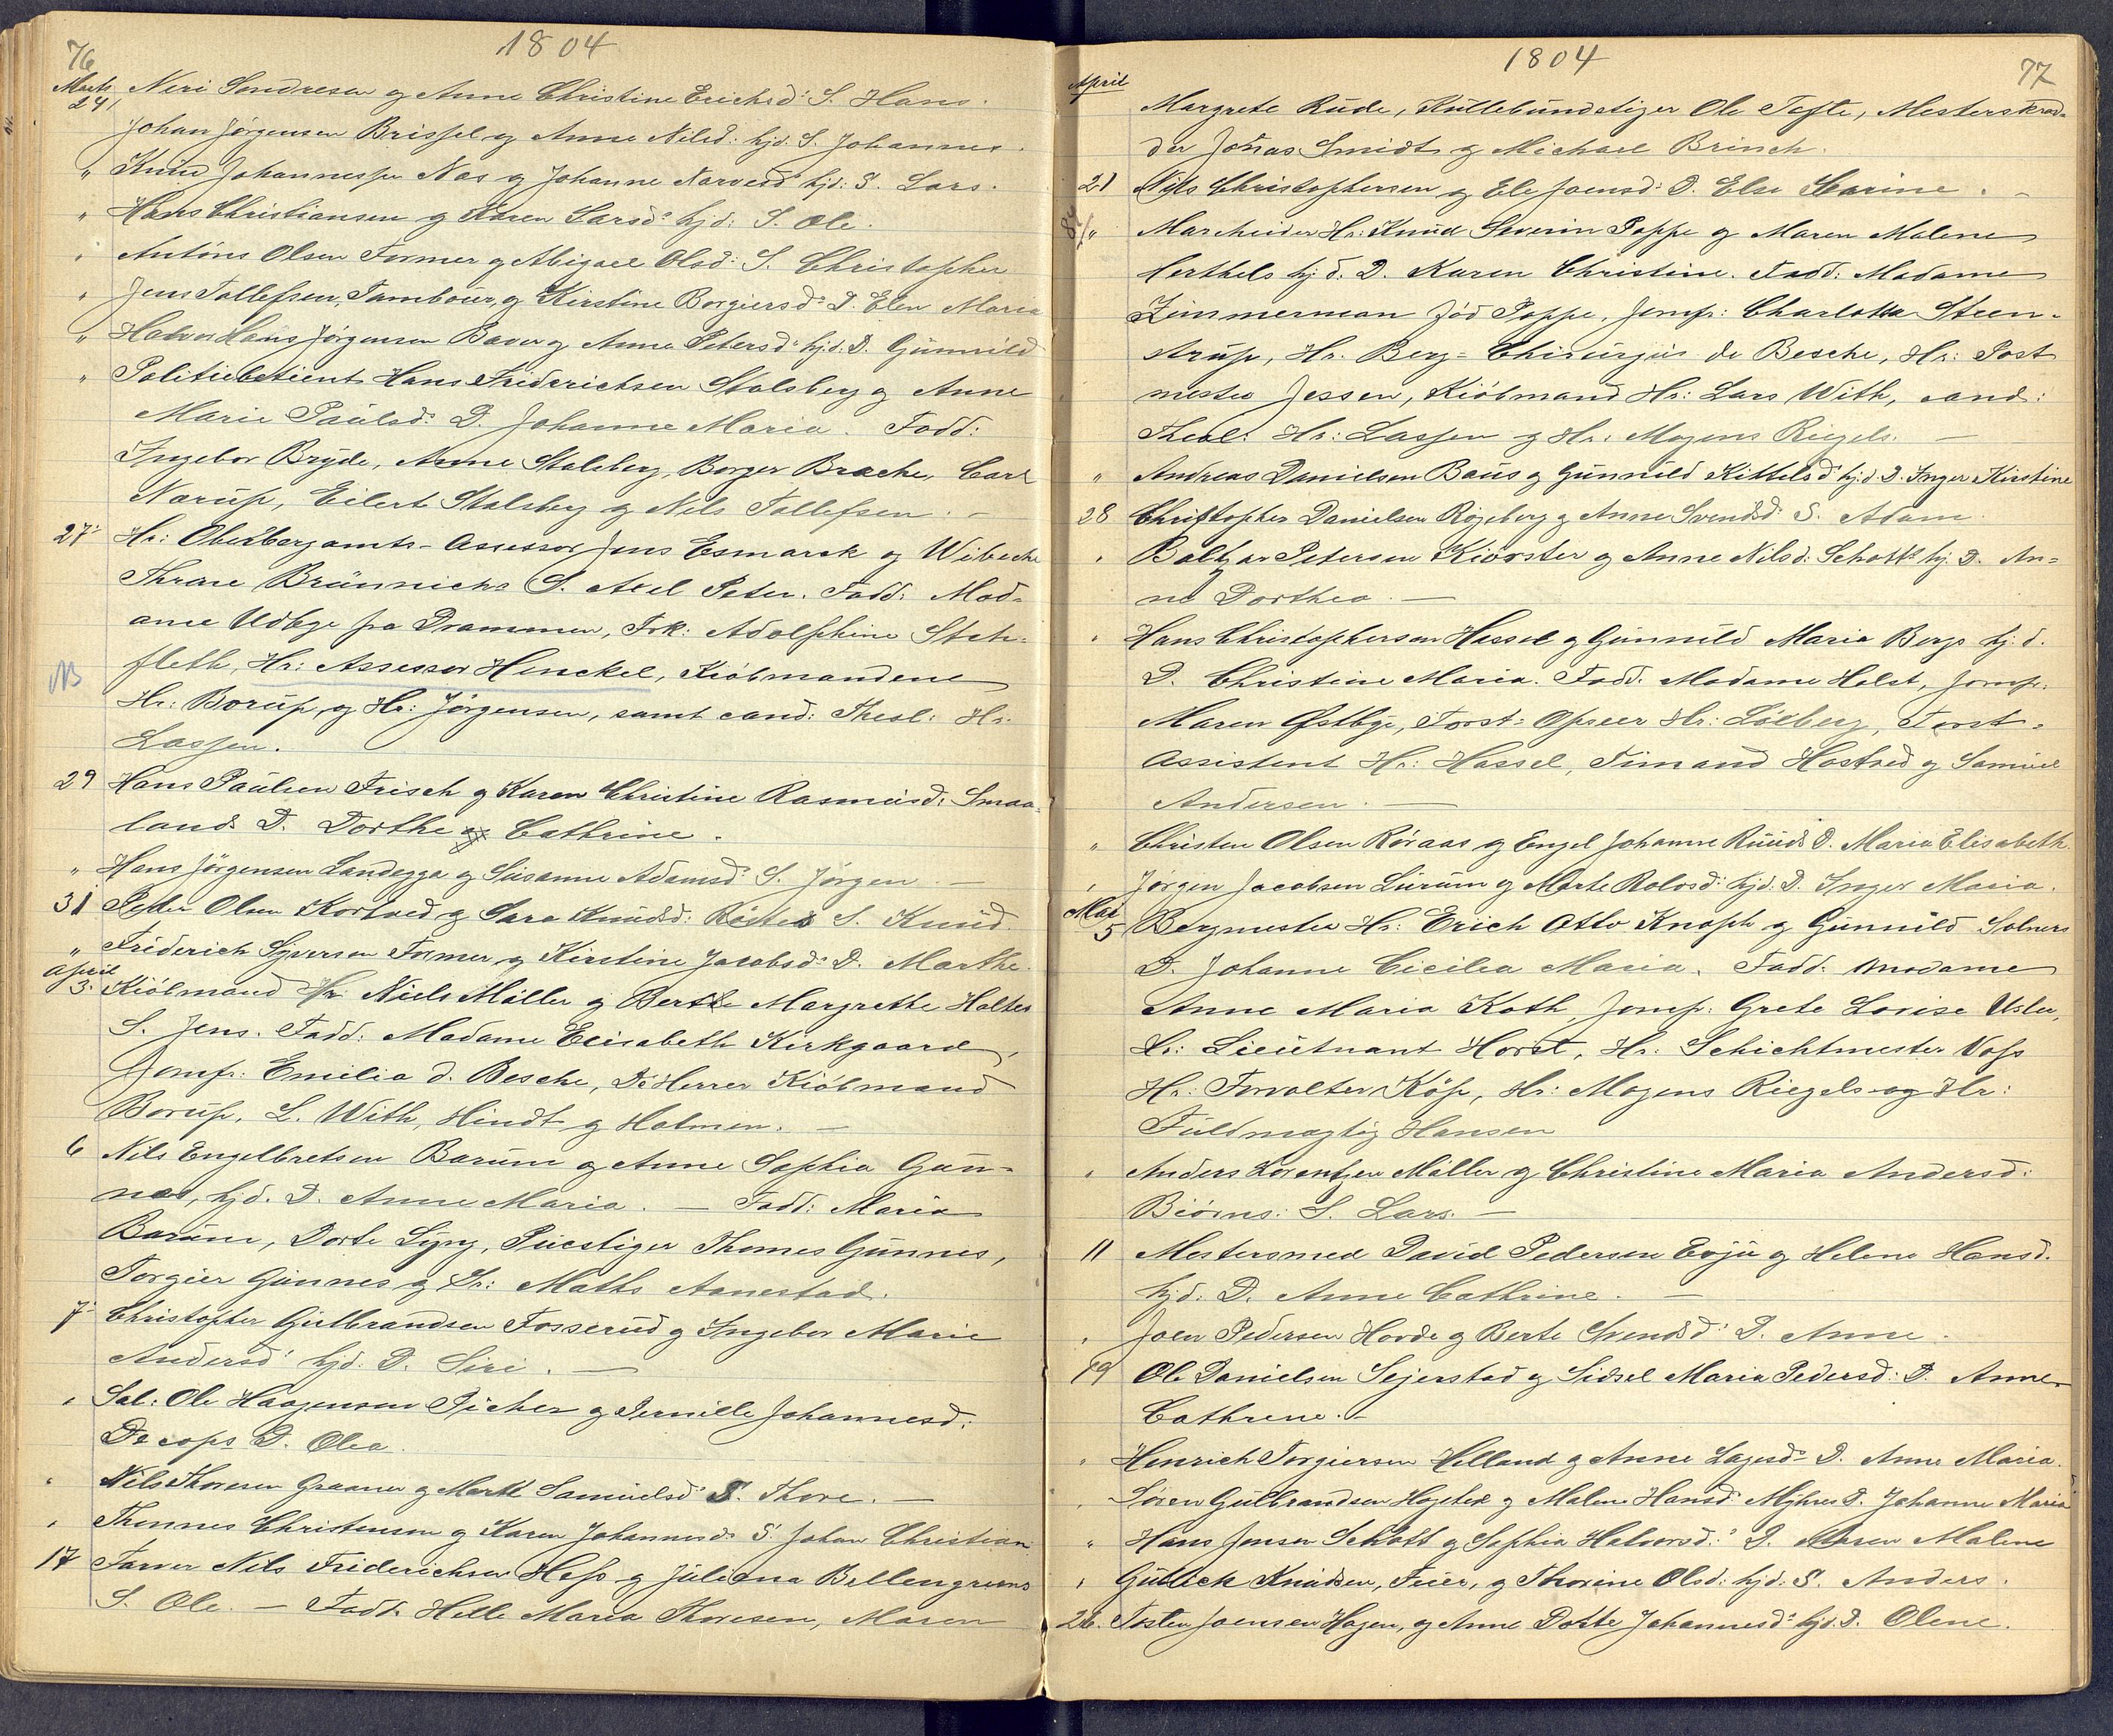 76
1804
Marts
24, Neri Sondresen og Anne Christine Erichsd: S. Hans.
Johan Jørgensen Brissel og Anne Nilsd: hjd. S. Johannes.
" Knud Johannessen Næs og Johanne Narvesd hjd: S. Lars.
" Hans Christiansen og Karen Larsd: hjd: S. Ole.
" Antons Olsen Former og Abigael Olsd: S. Christopher
" Jens Tollefsen, Tambour, og Kirstine Borgiersd: D. Elen Maria
" Halvor Hans Jørgensen Baver og Anne Petersd: hjd: D. Gunnild
" Politiebetient Hans Friderichsen Stalsberg og Anne
Marie Paulsd: D. Johanne Maria. Fadd:
Ingebor Bryde, Anne Stalsberg, Borger Brache, Carl
Nærup, Eilert Stalsberg og Nels Tollefsen. —
27: Hr: Oberbergamts-Assessor Jens Esmarck og Wibeche
Thrane Brünnichs S. Axel Peter. Fadd: Mad-
ame Udbye fra Drammen, Frk: Adolphine Steh-
fleth, Hr: Assessor Henckel, Kiöbmændene
NB
Hr: Borup, og Hr: Jörgensen, samt cand: Theol: Hr:
Lassen.
29 Hans Paulsen Frisch og Karen Christine Rasmusd: Smaa-
lands D. Dorthe Cathrine.
" Hans Jörgensen Landegga og Susanne Adamsd: S. Jörgen. —
31 Peder Olsen Kortved og Sara Knudsd: S. Knud.
" Friderich Syversen Former og Kirstine Jacobsd: D. Marthe.
April
3. Kiöbmand Hr Niels Möller og Berthe Margrethe Holtes
S. Jens. Fadd: Madame Elisabeth Kirkgaard,
Jomfr: Emilia d. Besche, De Herrer Kiöbmand
Borup, L. With, Hindt og Holmen. —
6 Nils Engelbretsen Barum og Anne Sophia Gun-
nes, hjd. D. Anne Maria. — Fadd: Maria
Barum, Dorte Lyng, Puestiger Thomes Gunnes,
Torgier Gunnes og Sr: Maths Aanestad.
7: Christopher Gulbrandsen Fosserud og Ingebor Marie
Andersd: hjd. D. Siri. —
" Sal: Ole Haagensen Picher og Pernille Johannesd:
D. Olea.
" Nils Thoresen Graaner og Marthe Samuelsd: S. Thore. —
" Thomes Christensen og Karen Johannesd: S. Johan Christian
17 Farver Nils Friderichsen Hess og Juliana Bellengreens
S. Ole. — Fadd: Helle Maria Thoresen, Maren
1804
77
April
Margrete Rude, Kullebundstiger Ole Tefte, Mesterskred-
der Jonas Smidt og Michael Brinch.
21 Nils Christophersen og Ele Joensd: D. Else Karine. —
" Marcheider Hr: Knud Severin Poppe og Maren Malene
Herthels hjd. D. Karen Christine. Fadd: Madame
Zimmerman föd Poppe, Jomfr: Charlotta Steen-
strup, Hr. Berg-Chirurgus de Besche, Hr: Post
mester Jessen, Kiöbmand Hr: Lars With, cand:
Theol: Hr: Lassen og Hr: Mogens Riegels. —
" Andreas Danielsen Baus og Gunnild Kittelsd: hj.d. D. Inger Kirstine
28 Christopher Danielsen Rogeberg og Anne Svendsd. S. Adam.
" Baltzar Petersen Kiörster og Anne Nilsd: Schotts hj. D. An-
ne Dorthea. —
" Hans Christophersen Hassel og Gunnild Maria Bergs hj.d.
D. Christine Maria. Fadd. Madame Holst, Jomfr:
Maren Østbye, Forst-Opseer Hr: Löeberg, Forst-
Assistent Hr: Hassel, Timand Hostved og Samuel
Andersen. —
" Christen Olsen Röraas og Engel Johanne Ruuds D. Maria Elisabeth.
" Jørgen Jacobsen Lurum og Marte Rolosd: hjd: D. Inger Maria.
Mai
5 Bergmester Hr: Erich Otto Knoph og Gunnild Solners
D. Johanne Cicilea Maria. Fadd. Madame
Anne Maria Koth, Jomfr: Grete Lovise Usler,
Hr: Lieutnant Horst, Hr: Schichtmester Voss
Hr: Forvalter Köp, Hr: Mogens Riegels og Hr:
Fuldmægtig Hansen
" Anders Lorentzen Möller og Christine Maria Andersd:
Biörns: S. Lars. —
11 Mestersmed David Pedersen Evju og Helene Hansd.
hjd: D. Anne Cathrine. —
" Joen Pedersen Hovde og Berte Svendsd: D. Anne.
19 Ole Danielsen Sejerstad og Sidsel Maria Pedersd: D. Anne
Cathrine. —
" Henrich Torgiersen Helland og Anne Lagesd: D. Anne Maria.
" Søren Gulbrandsen og Malene Hansd. Myhres D. Johanne Maria
" Hans Jensen Schott og Sophia Halvorsd: D. Maren Malene
" Gullick Knudsen, Feier, og Thorine Olsd: hjd: S. Anders.
26. Tosten Joensen Hagen, og Anne Dorte Johannesd: hjd. D. Olene.